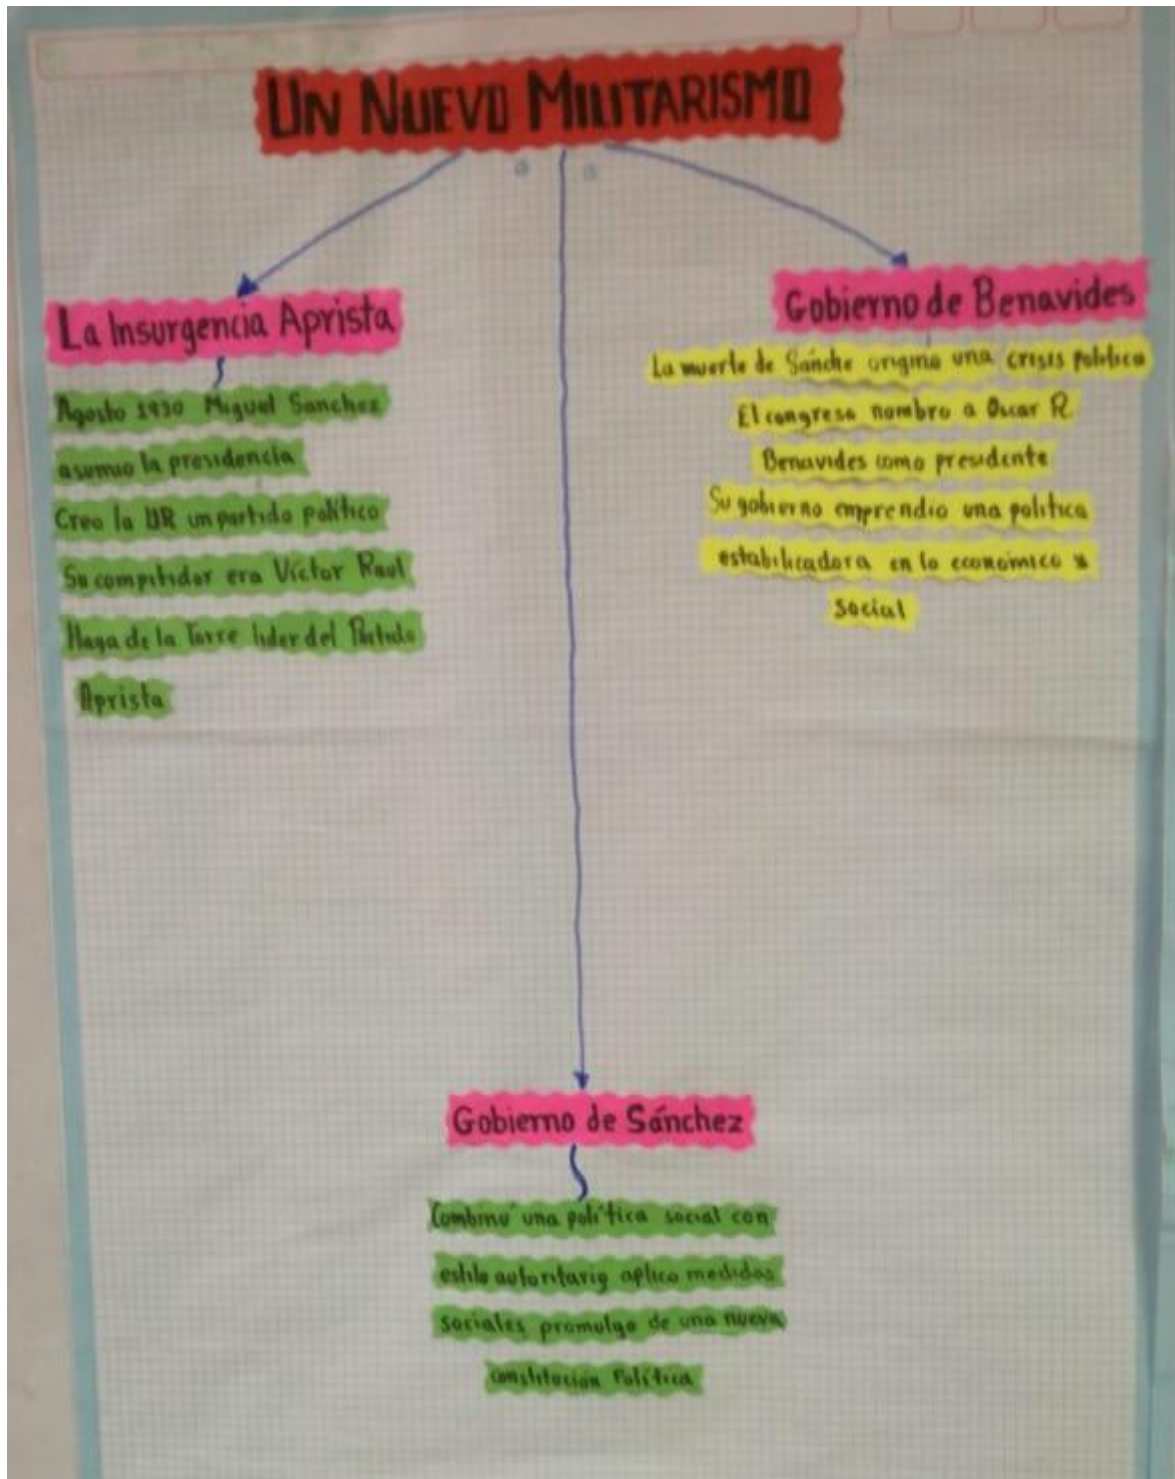 UN NUEVO MILITARISMO
La Insurgencia Aprista
Agosto 1930 Miguel Sanchez
asumio la presidencia
Creo la UR un partido político
Su competidor era Víctor Raul
Haya de la Torre lider del Partido
Aprista
Gobierno de Benavides
La muerte de Sánche origina una crisis politica
El congreso nombro a Oscar R
Benavides como presidente
Su gobierno emprendio una politica
estabilizadora en lo economico y
social
Gobierno de Sánchez
Combino una política social con
estilo autoritario aplico medidas
sociales promulgo de una nueva
constitucion Política